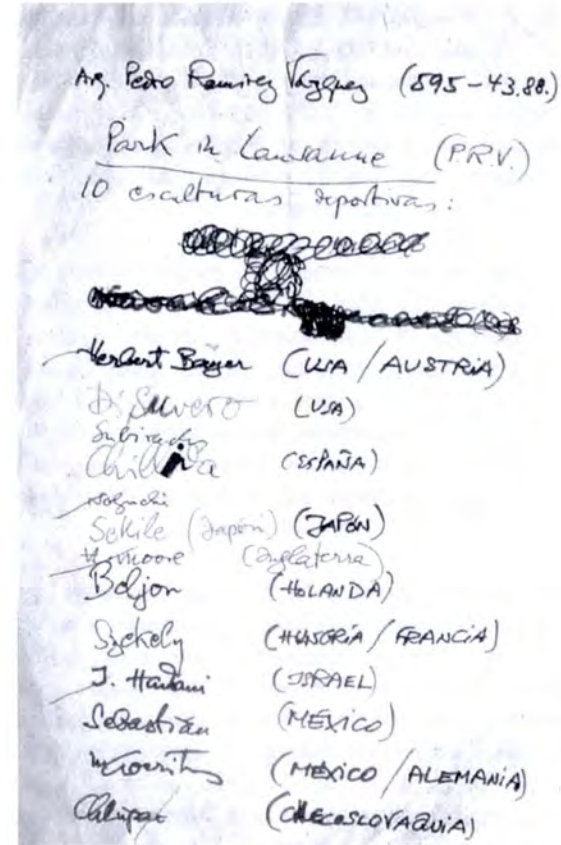 Arq. Pedro Ramirez Vázquez (595-43.88.)
Park in Lausanne (P.R.V.)
10 esculturas deportivas:
Herbert Bayer (USA / AUSTRIA)
Di Suvero (USA)
Subirachs
Chillida (ESPAÑA)
Noguchi
Sekine (Japón) (JAPÓN)
H. Moore (Inglaterra)
Boljon (HOLANDA)
Szekely (HUNGRÍA / FRANCIA)
J. (ISRAEL)
Sebastián (MÉXICO)
(MÉXICO / ALEMANIA)
Chlupac (CHECOSLOVAQUIA)